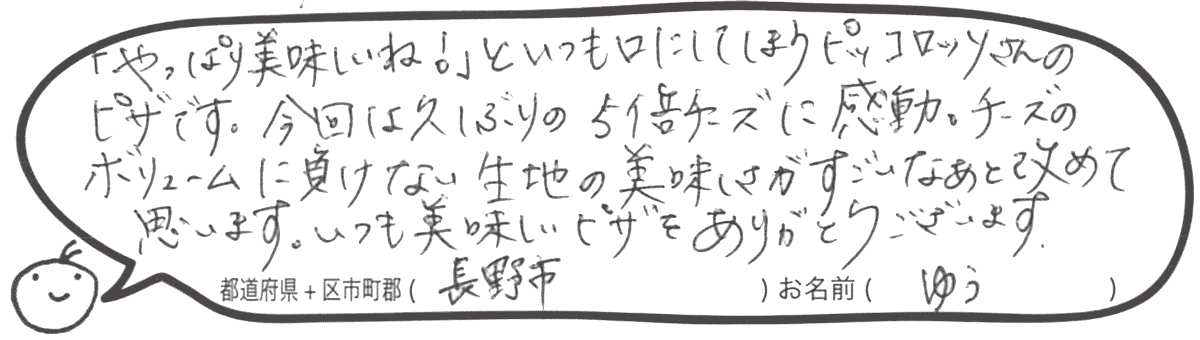 「やっぱり美味しいね！」といつも口にしてしまうピッコロッソさんの
ピザです。今回は久しぶりの5倍チーズに感動。チーズの
ボリュームに負けない生地の美味しさがすごいなあと改めて
思います。いつも美味しいピザをありがとうございます.
都道府県+区市町郡( 長野市 ) お名前( ゆう )